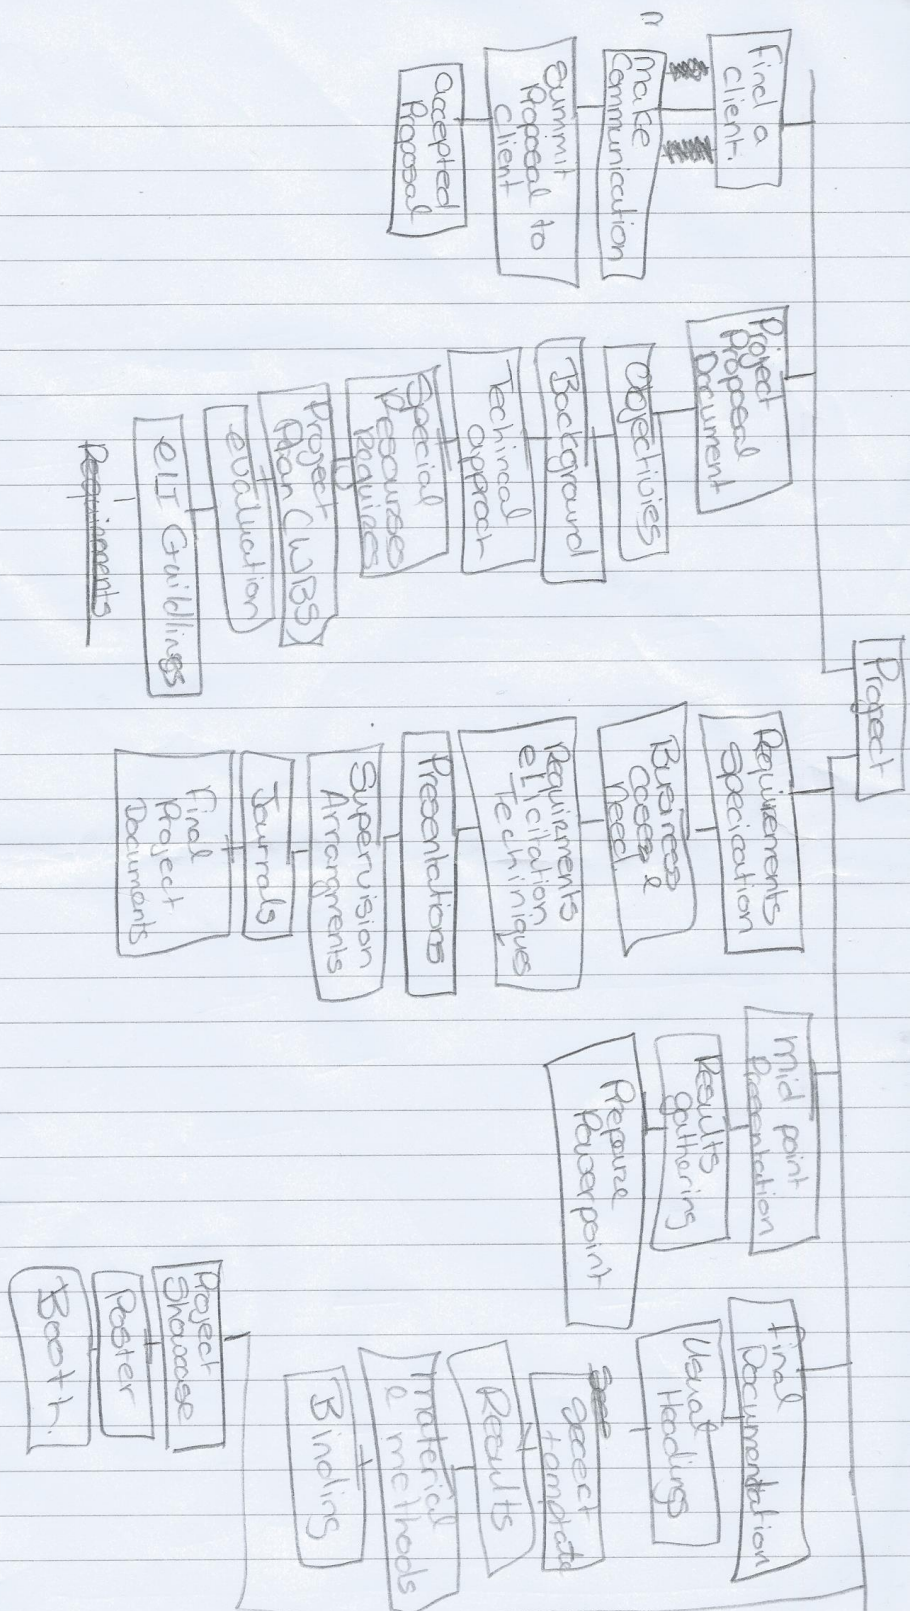 Project
Find a
Client.
Make
Communication
Summit
Proposal to
client
accepted
Proposal
Project
Proposal
Document
Objectivies
Background
Techincal
approct
Special
Resourses
Requires
Project
Plan (WBS)
evaluation
eLI Guildlings
Requirements
Requirements
Specication
Business
Cases &
need
Requirments
elicitation
Techiniques
Presentations
Supervision
Arrangments
Journals
Final
Project
Documents
Mid point
Presentation
Results
gathering
Prepare
Powerpoint
Final
Documentation
Usual
Headings
Results
Material
& methods
Binding
Project
Showcase
Poster
Booth.